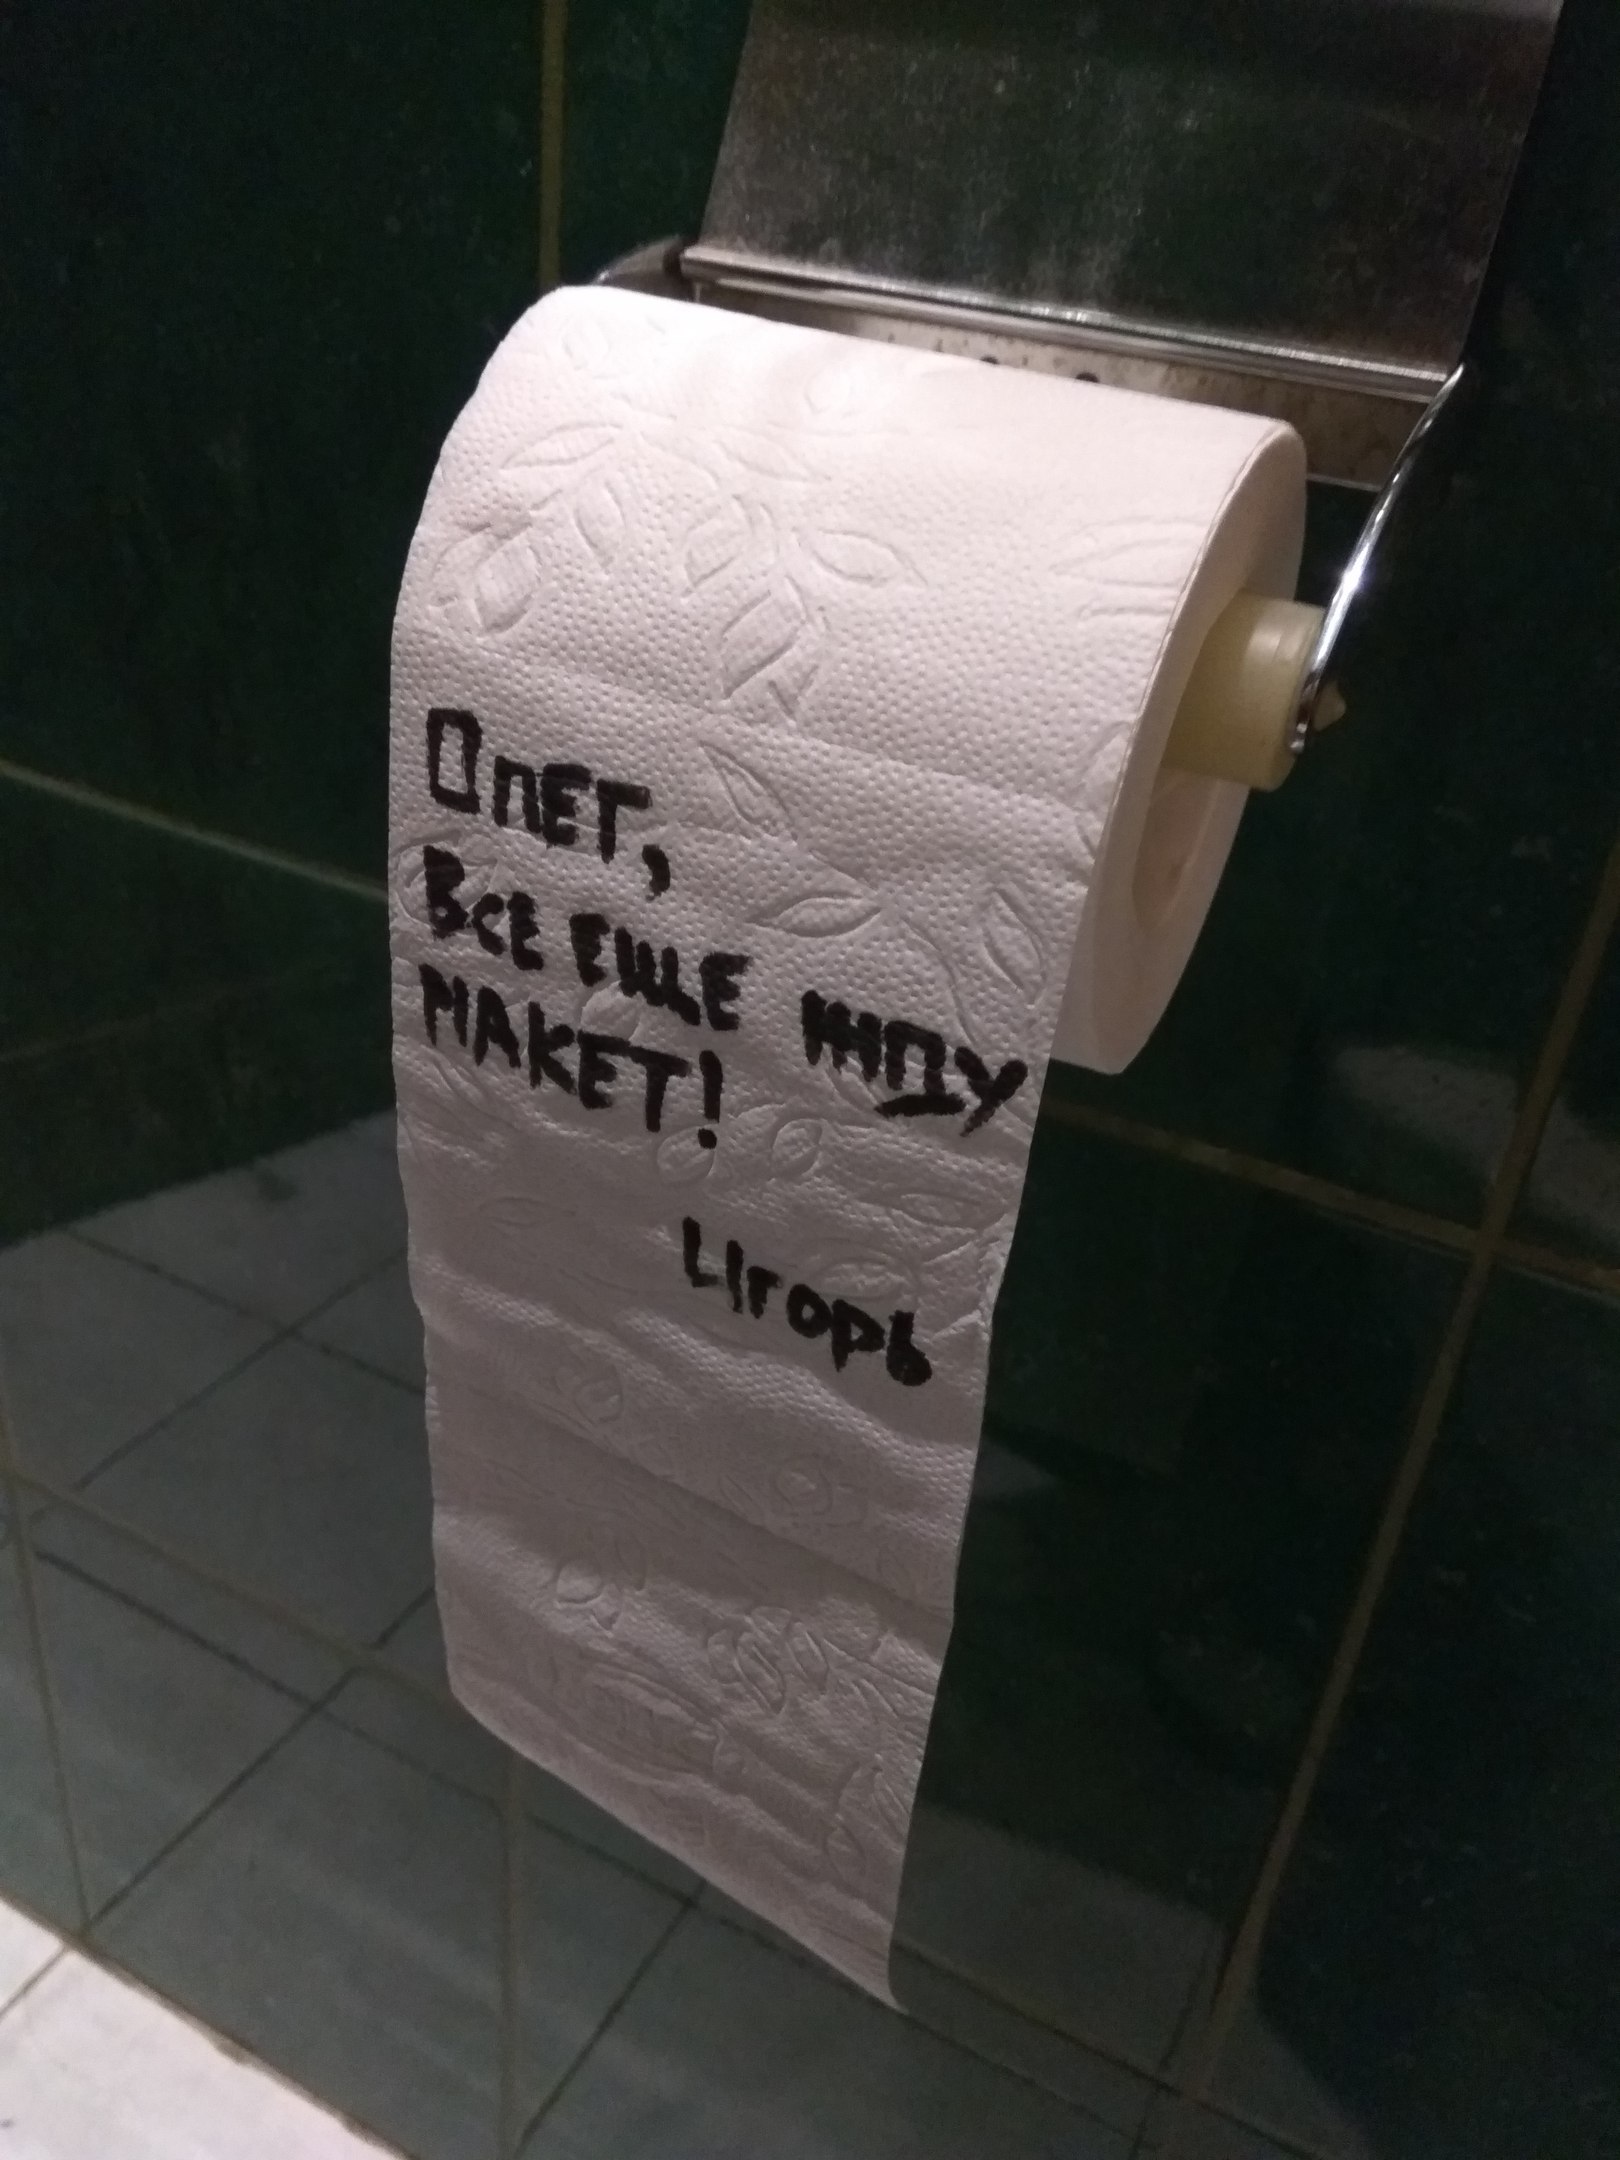 Олег,
все еще жду
макет!
Игорь